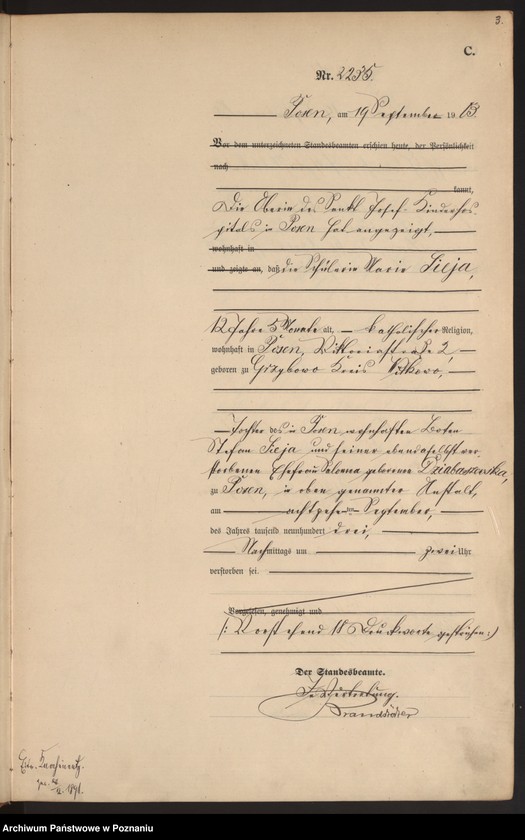 3.
C.
Nr. 2255.
Posen, am 19 September 1903.
Vor dem unterzeichneten Standesbeamten erschien heute, der Persönlichkeit
nach
kannt,
Die Oberin des Sankt Josef-Kinderhos-
pitals in Posen hat angezeigt,
wohnhaft in
und zeigte an, daß die Schülerin Maria Sieja,
12 Jahre 5 Monate alt, katholischer Religion,
wohnhaft in Posen, Viktoriastraße 2,
geboren zu Grzybowo Kreis Witkowo,
Tochter des in Posen wohnhaften Boten
Stefan Sieja und seiner ebendaselbst ver-
storbenen Ehefrau Salomea geborene
zu Posen, in oben genannter Anstalt,
am achtzehnten September,
des Jahres tausend neunhundert drei,
Nachmittags um zwei Uhr
verstorben sei.
Vorgelesen, genehmigt und
/: Vorstehend 18 Druckworte gestrichen :/
Der Standesbeamte.
In Vertretung.
Brandstäter
Archiwum Państwowe w Poznaniu